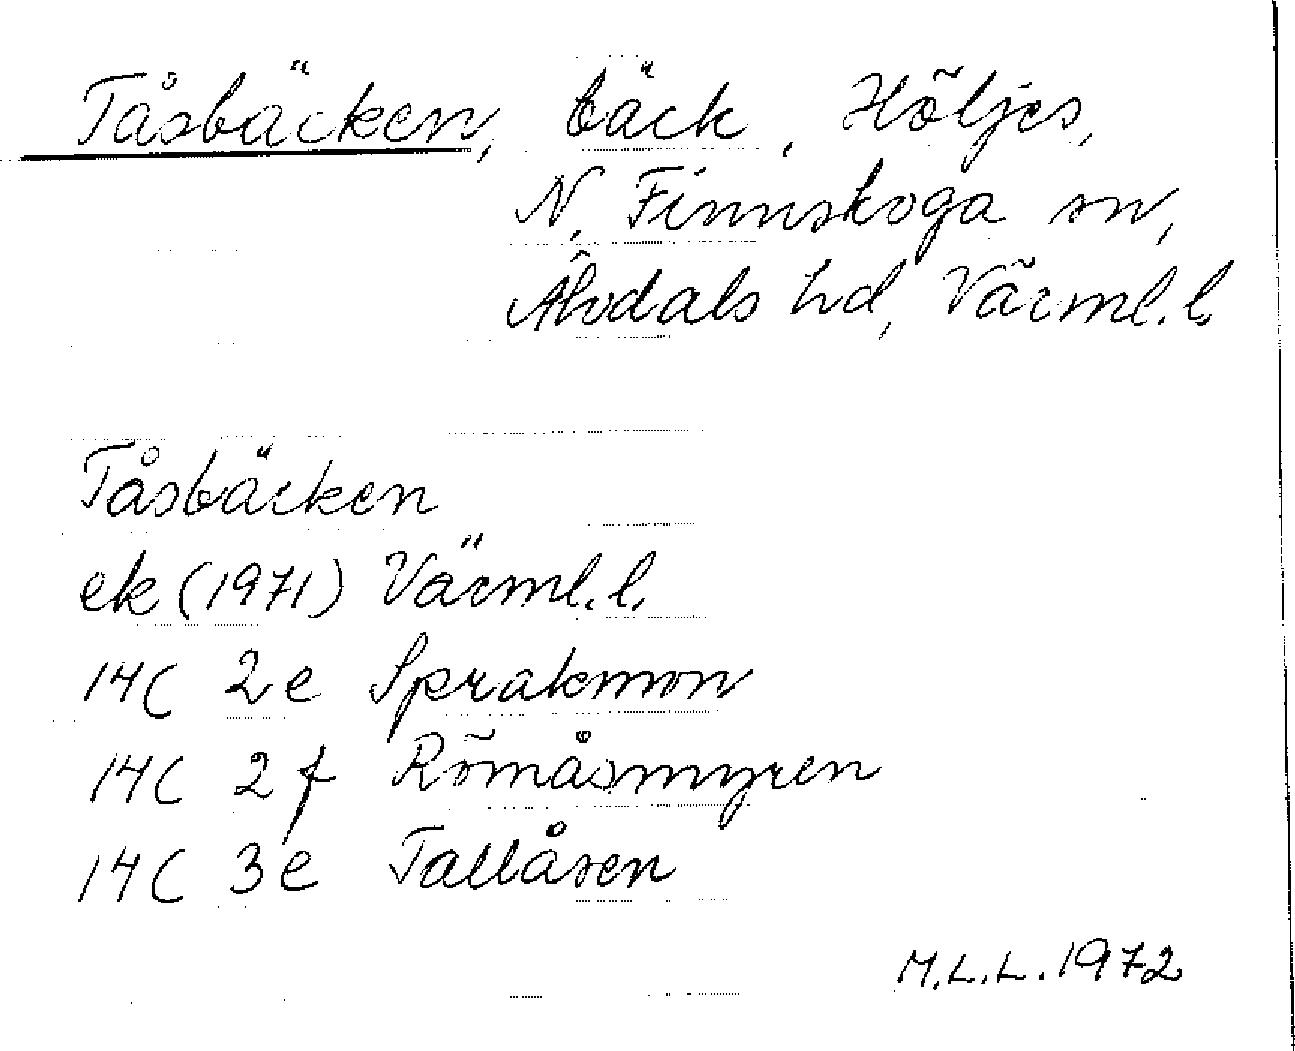 Tåsbäcken, bäck, Höljes,
N. Finnskoga sn,
Älvdals hd, Värml. l.
Tåsbäcken
ek (1971) Värml. l.
14C 2e Sprakmon
14C 2f Römåsmyren
14C 3e Tallåsen
M.L.L. 1972